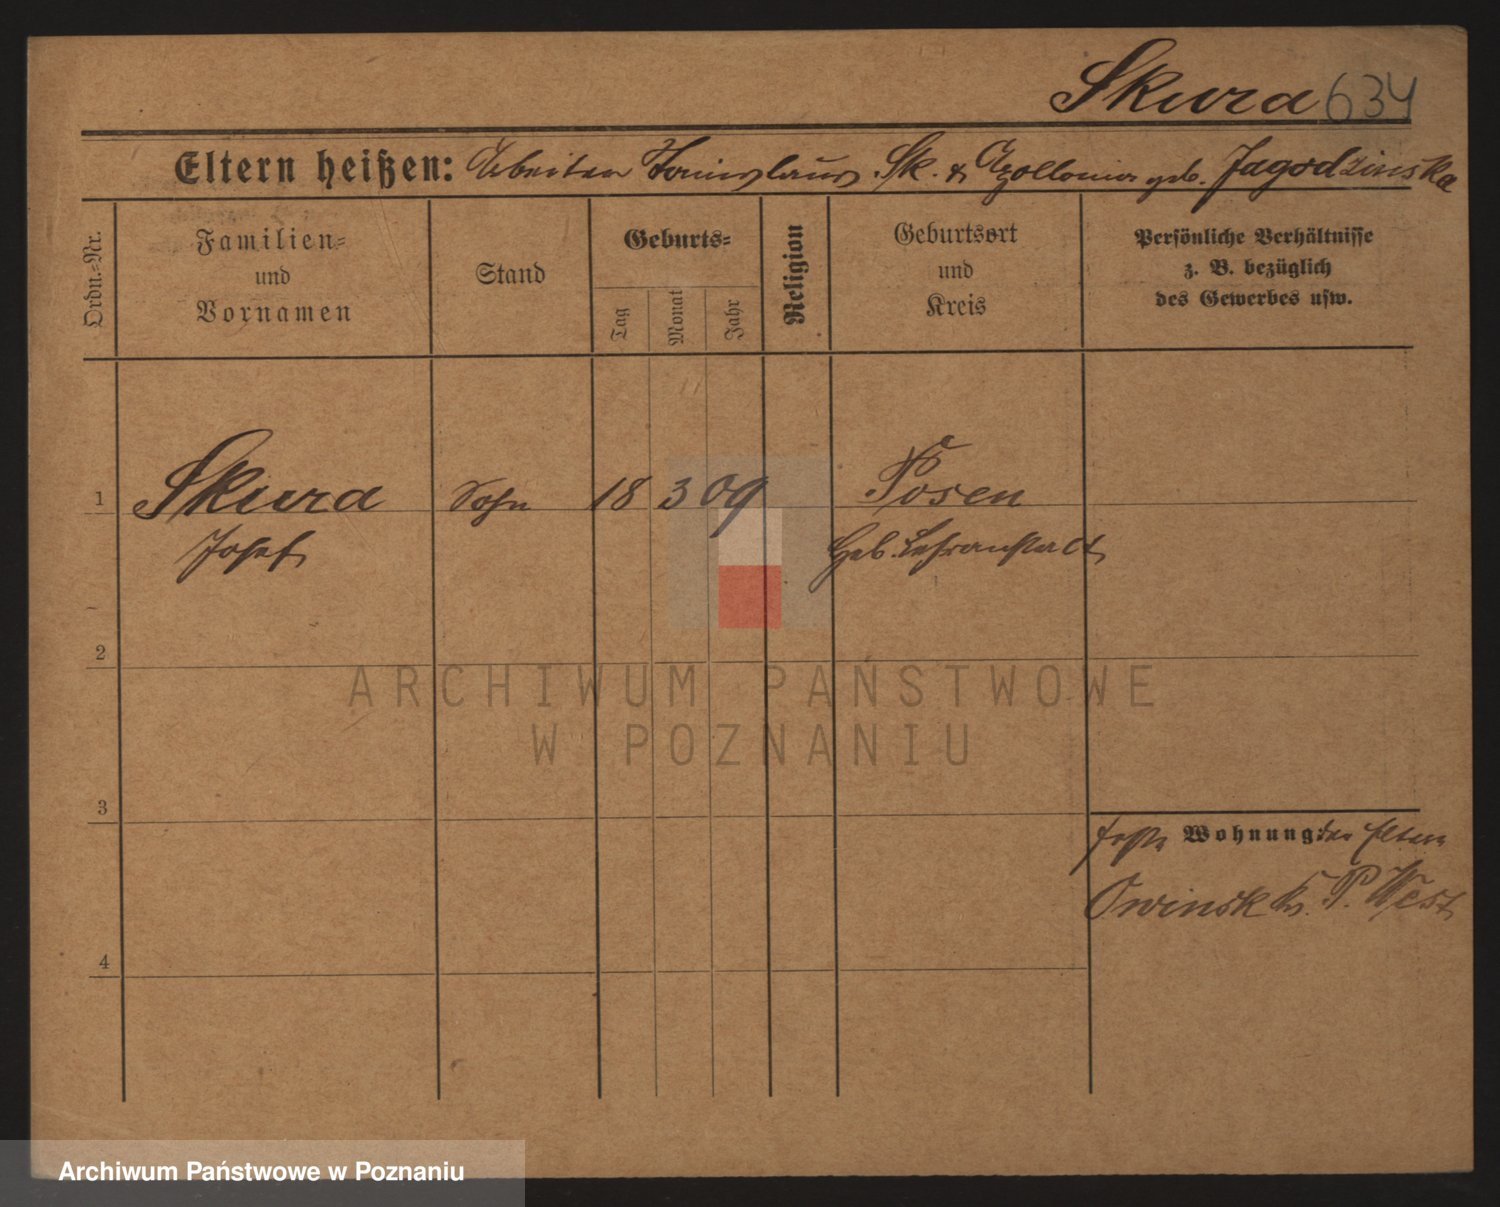 Skura 634
Eltern heißen: Arbeiter Stanislaus Sk. & Apollonia geb. Jagodzinska
Ordn.=Nr.
Familien=
und
Vornamen
Stand
Geburts=
Tag
Monat
Jahr
Religion
Geburtsort
und
Kreis
Persönliche Verhältnisse
z. B. bezüglich
des Gewerbes usw.
1 Skura Sohn 18 3 09 Posen
Josef Heb. Lehranstalt
2
ARCHIWUM PAŃSTWOWE
W POZNANIU
3
Wohnung: der Eltern
Owinsk Kr. P. West
4
Archiwum Państwowe w Poznaniu